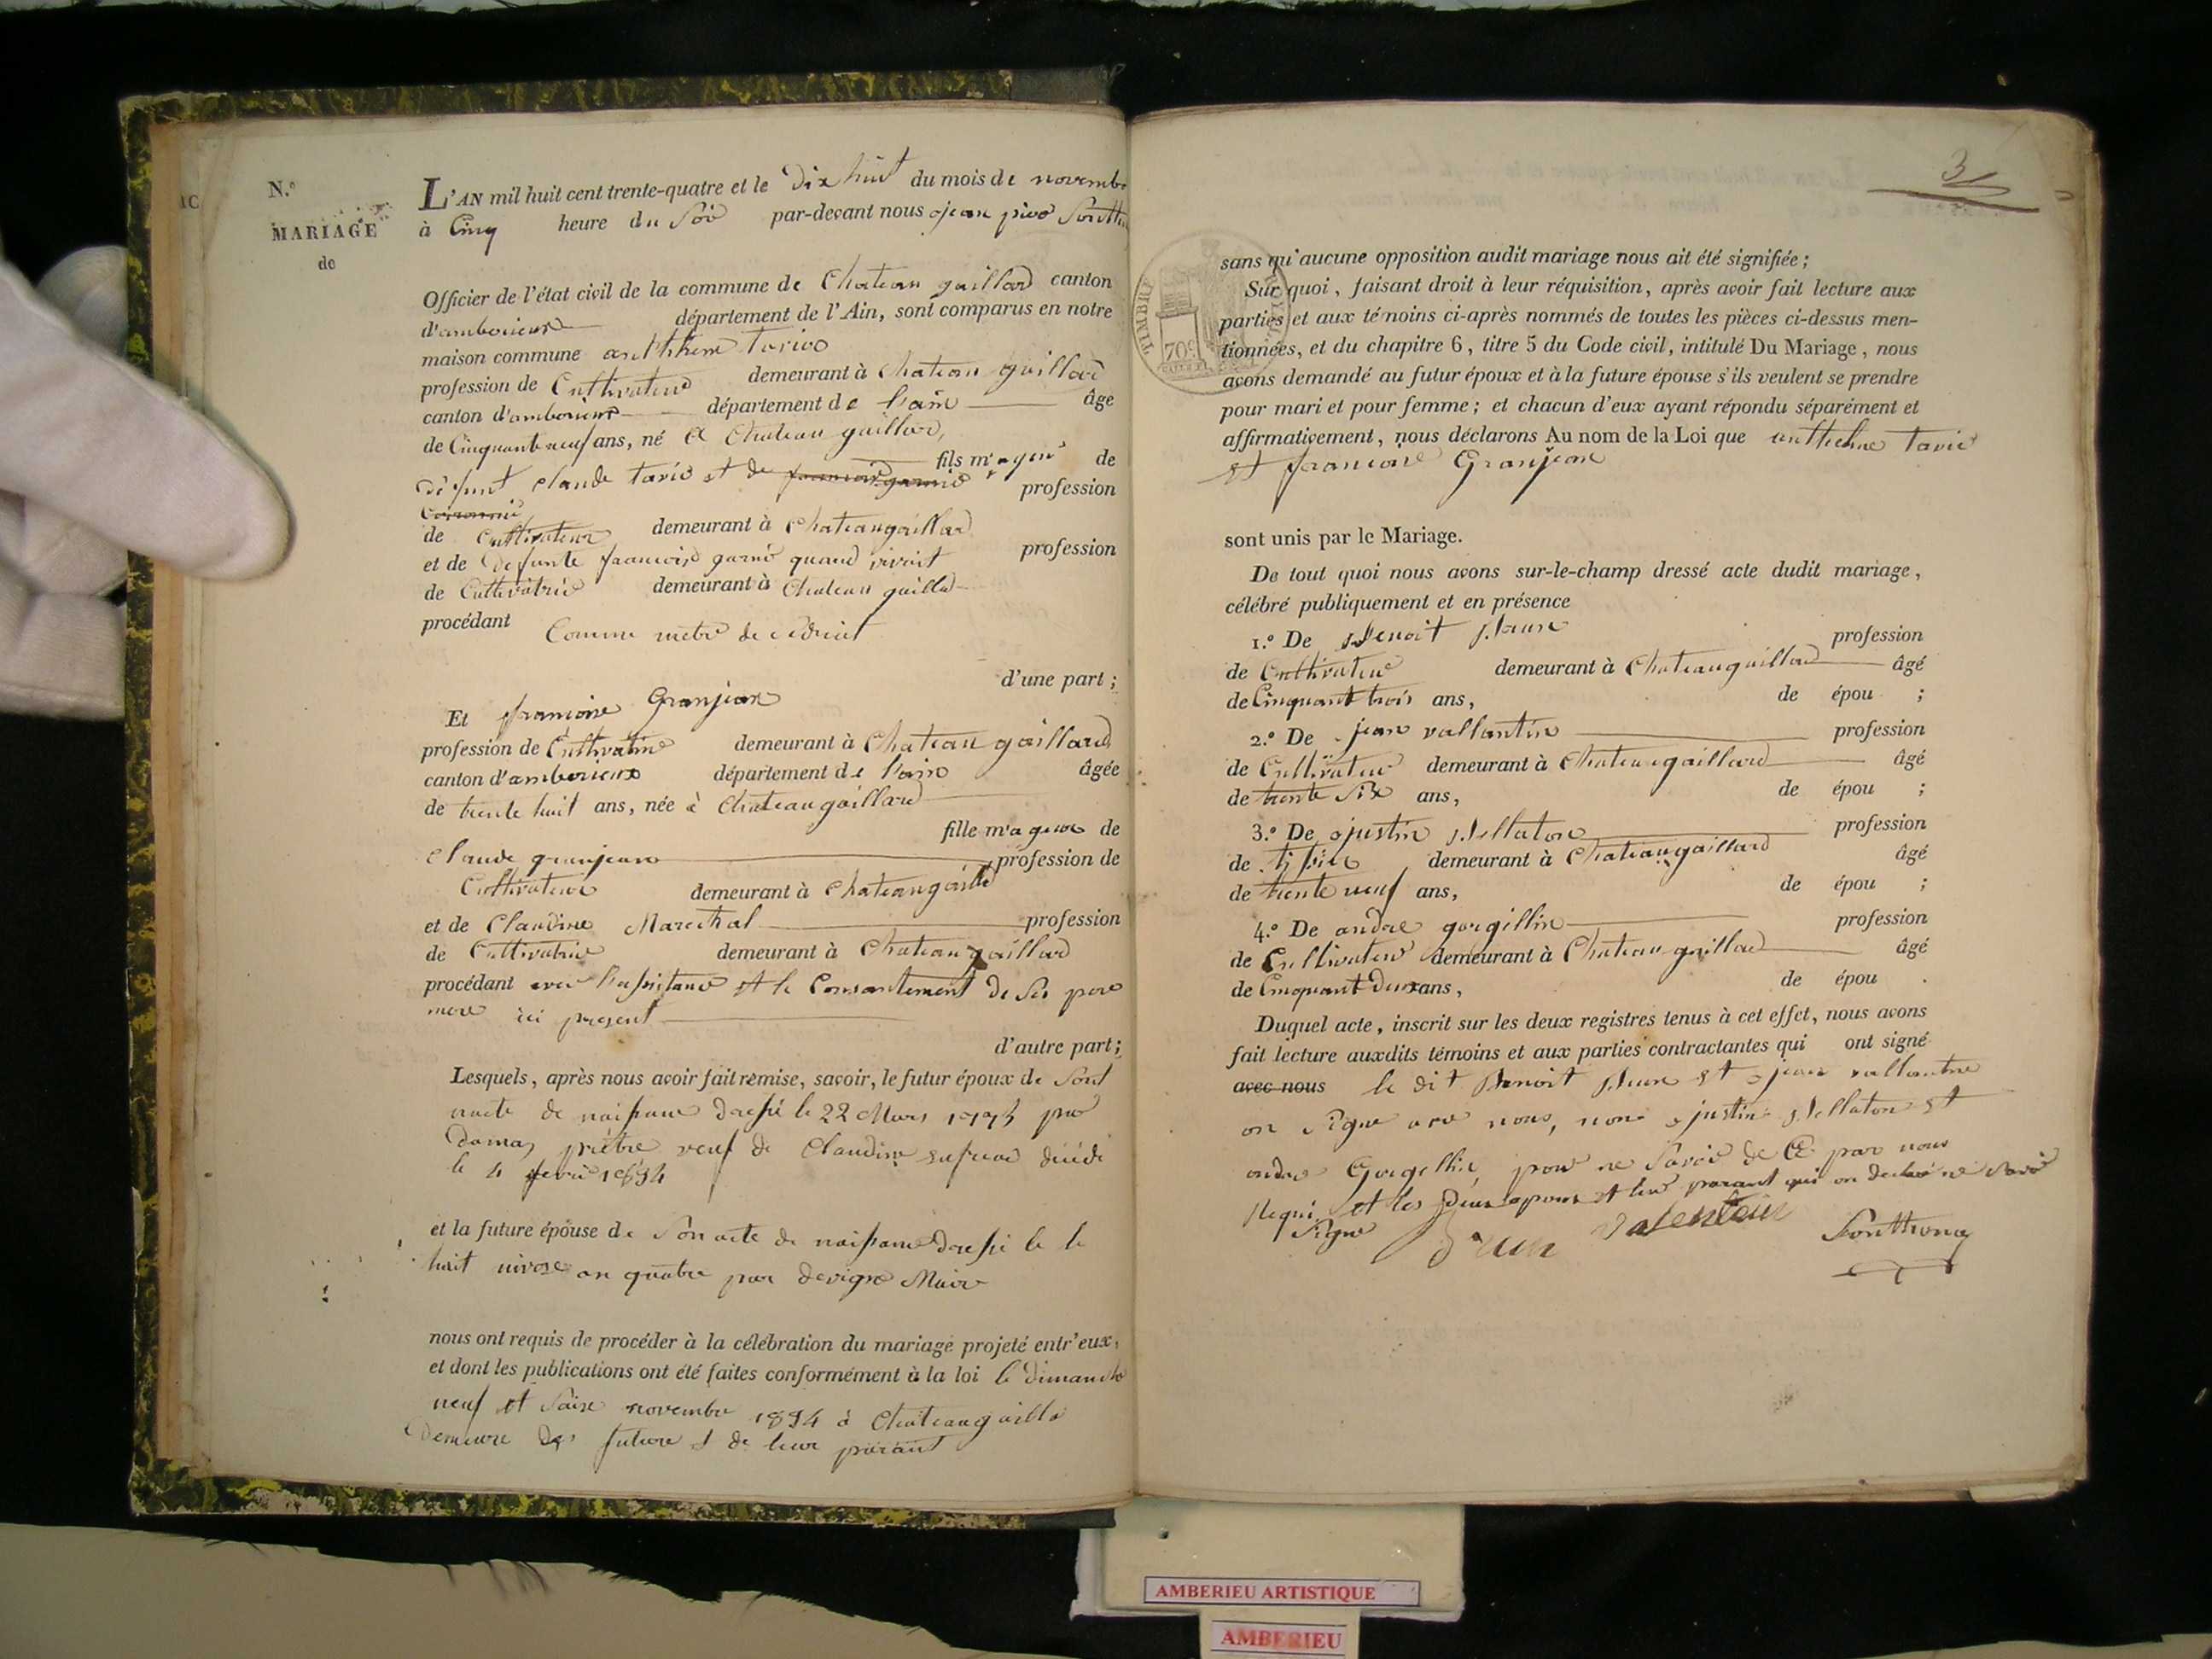 N.º
MARIAGE
de
L'AN mil huit cent trente-quatre et le dix huit du mois de novembre
à Cinq heure du Soir par-devant nous jean
Officier de l'état civil de la commune de Chateau gaillard canton
d'amberieux département de l'Ain, sont comparus en notre
maison commune anthelme tavie
profession de Cultivateur demeurant à Chateau gaillard
canton d'amberieux département de l'ain âge
de Cinquante neuf ans, né a Chateau gaillard,
fils mageur de
défunt claude tavie et de profession
de Cultivateur demeurant à Chateaugaillard
et de defunte francoise garnie quand vivoit profession
de Cultivatrice demeurant à Chateau gaillard
procédant Comme metre de ses droit
d'une part ;
Et francoise Granjean
profession de Cultivatrice demeurant à Chateau gaillard
canton d'amberieux département de l'ain âgée
de trente huit ans, née à Chateaugaillard
fille mageure de
claude granjean profession de
Cultivateur demeurant à Chateaugaillard
et de Claudine Marechal profession
de Cultivatrice demeurant à Chateaugaillard
procédant avec l'assistance et le Consantement de ses pere
mere ici present
d'autre part ;
Lesquels, après nous avoir fait remise, savoir, le futur époux de Sont
nacte de naissance dressé le 22 Mars par
prêtre veuf de Claudine décédé
le 4 1834
et la future épouse de Son acte de naissance dressé le le
huit nivose an quatre par devigne Maire
nous ont requis de procéder à la célébration du mariage projeté entr'eux,
et dont les publications ont été faites conformément à la loi le dimanche
neuf et Saise novembre 1834 à Chateaugaillard
demeure des future et de leur parant
3
TIMBRE ROYAL
70c
sans qu'aucune opposition audit mariage nous ait été signifiée ;
Sur quoi, faisant droit à leur réquisition, après avoir fait lecture aux
parties et aux témoins ci-après nommés de toutes les pièces ci-dessus men-
tionnées, et du chapitre 6, titre 5 du Code civil, intitulé Du Mariage, nous
avons demandé au futur époux et à la future épouse s'ils veulent se prendre
pour mari et pour femme ; et chacun d'eux ayant répondu séparément et
affirmativement, nous déclarons Au nom de la Loi que anthelme tavie
et francoise Granjean
sont unis par le Mariage.
De tout quoi nous avons sur-le-champ dressé acte dudit mariage,
célébré publiquement et en présence
1.º De Benoit profession
de Cultivateur demeurant à Chateaugaillard âgé
de Cinquante trois ans, de épou ;
2.º De jean vallantin profession
de Cultivateur demeurant à Chateaugaillard âgé
de trente six ans, de épou ;
3.º De justin profession
de tissier demeurant à Chateaugaillard âgé
de trente neuf ans, de épou ;
4.º De andre gorgellin profession
de Cultivateur demeurant à Chateau gaillard âgé
de Cinquante Deux ans, de épou .
Duquel acte, inscrit sur les deux registres tenus à cet effet, nous avons
fait lecture auxdits témoins et aux parties contractantes qui ont signé
avec nous le dit Benoit et jean vallantin
on signe avec nous, non justin et
andre Gorgellin, pour ne Savoir de Ce par nous
et les Deux epoux et leur parant qui on declaré ne Savoir
signe
valentin
AMBERIEU ARTISTIQUE
AMBERIEU